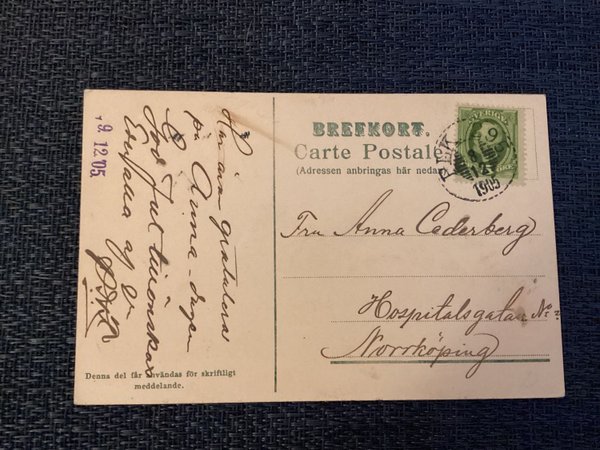 BREFKORT.
Carte Postale
(Adressen anbringas här nedan
SVERIGE
PLK
9
1905
Fru Anna Cederberg
Hospitalsgatan No
Norrköping
9.12.05
gratuleras
på Anna-dagen
God Jul tillönskas
af
Denna del får användas för skriftligt
meddelande.